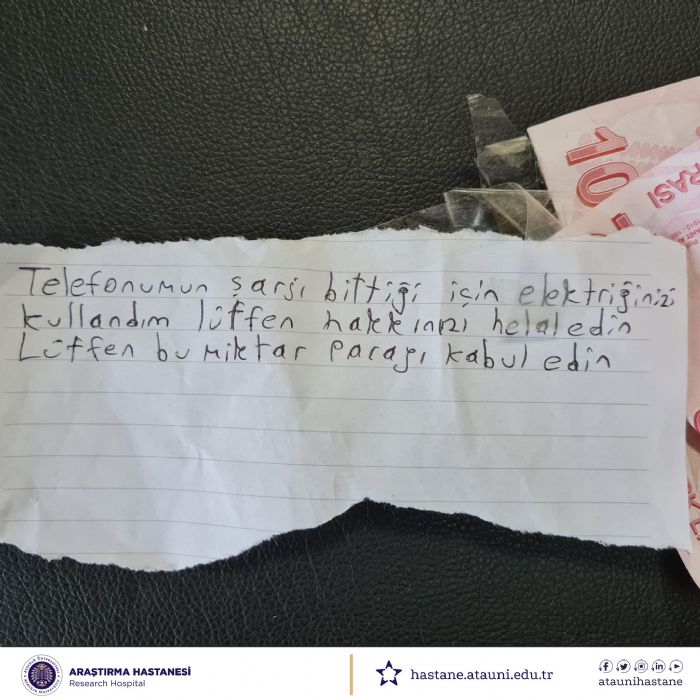 10
RASI
Telefonumun şarjı bittiği için elektriğinizi
kullandım lütfen hakkınızı helal edin
Lütfen bu miktar parayı kabul edin
ARAŞTIRMA HASTANESİ
Research Hospital
hastane.atauni.edu.tr
ataunihastane